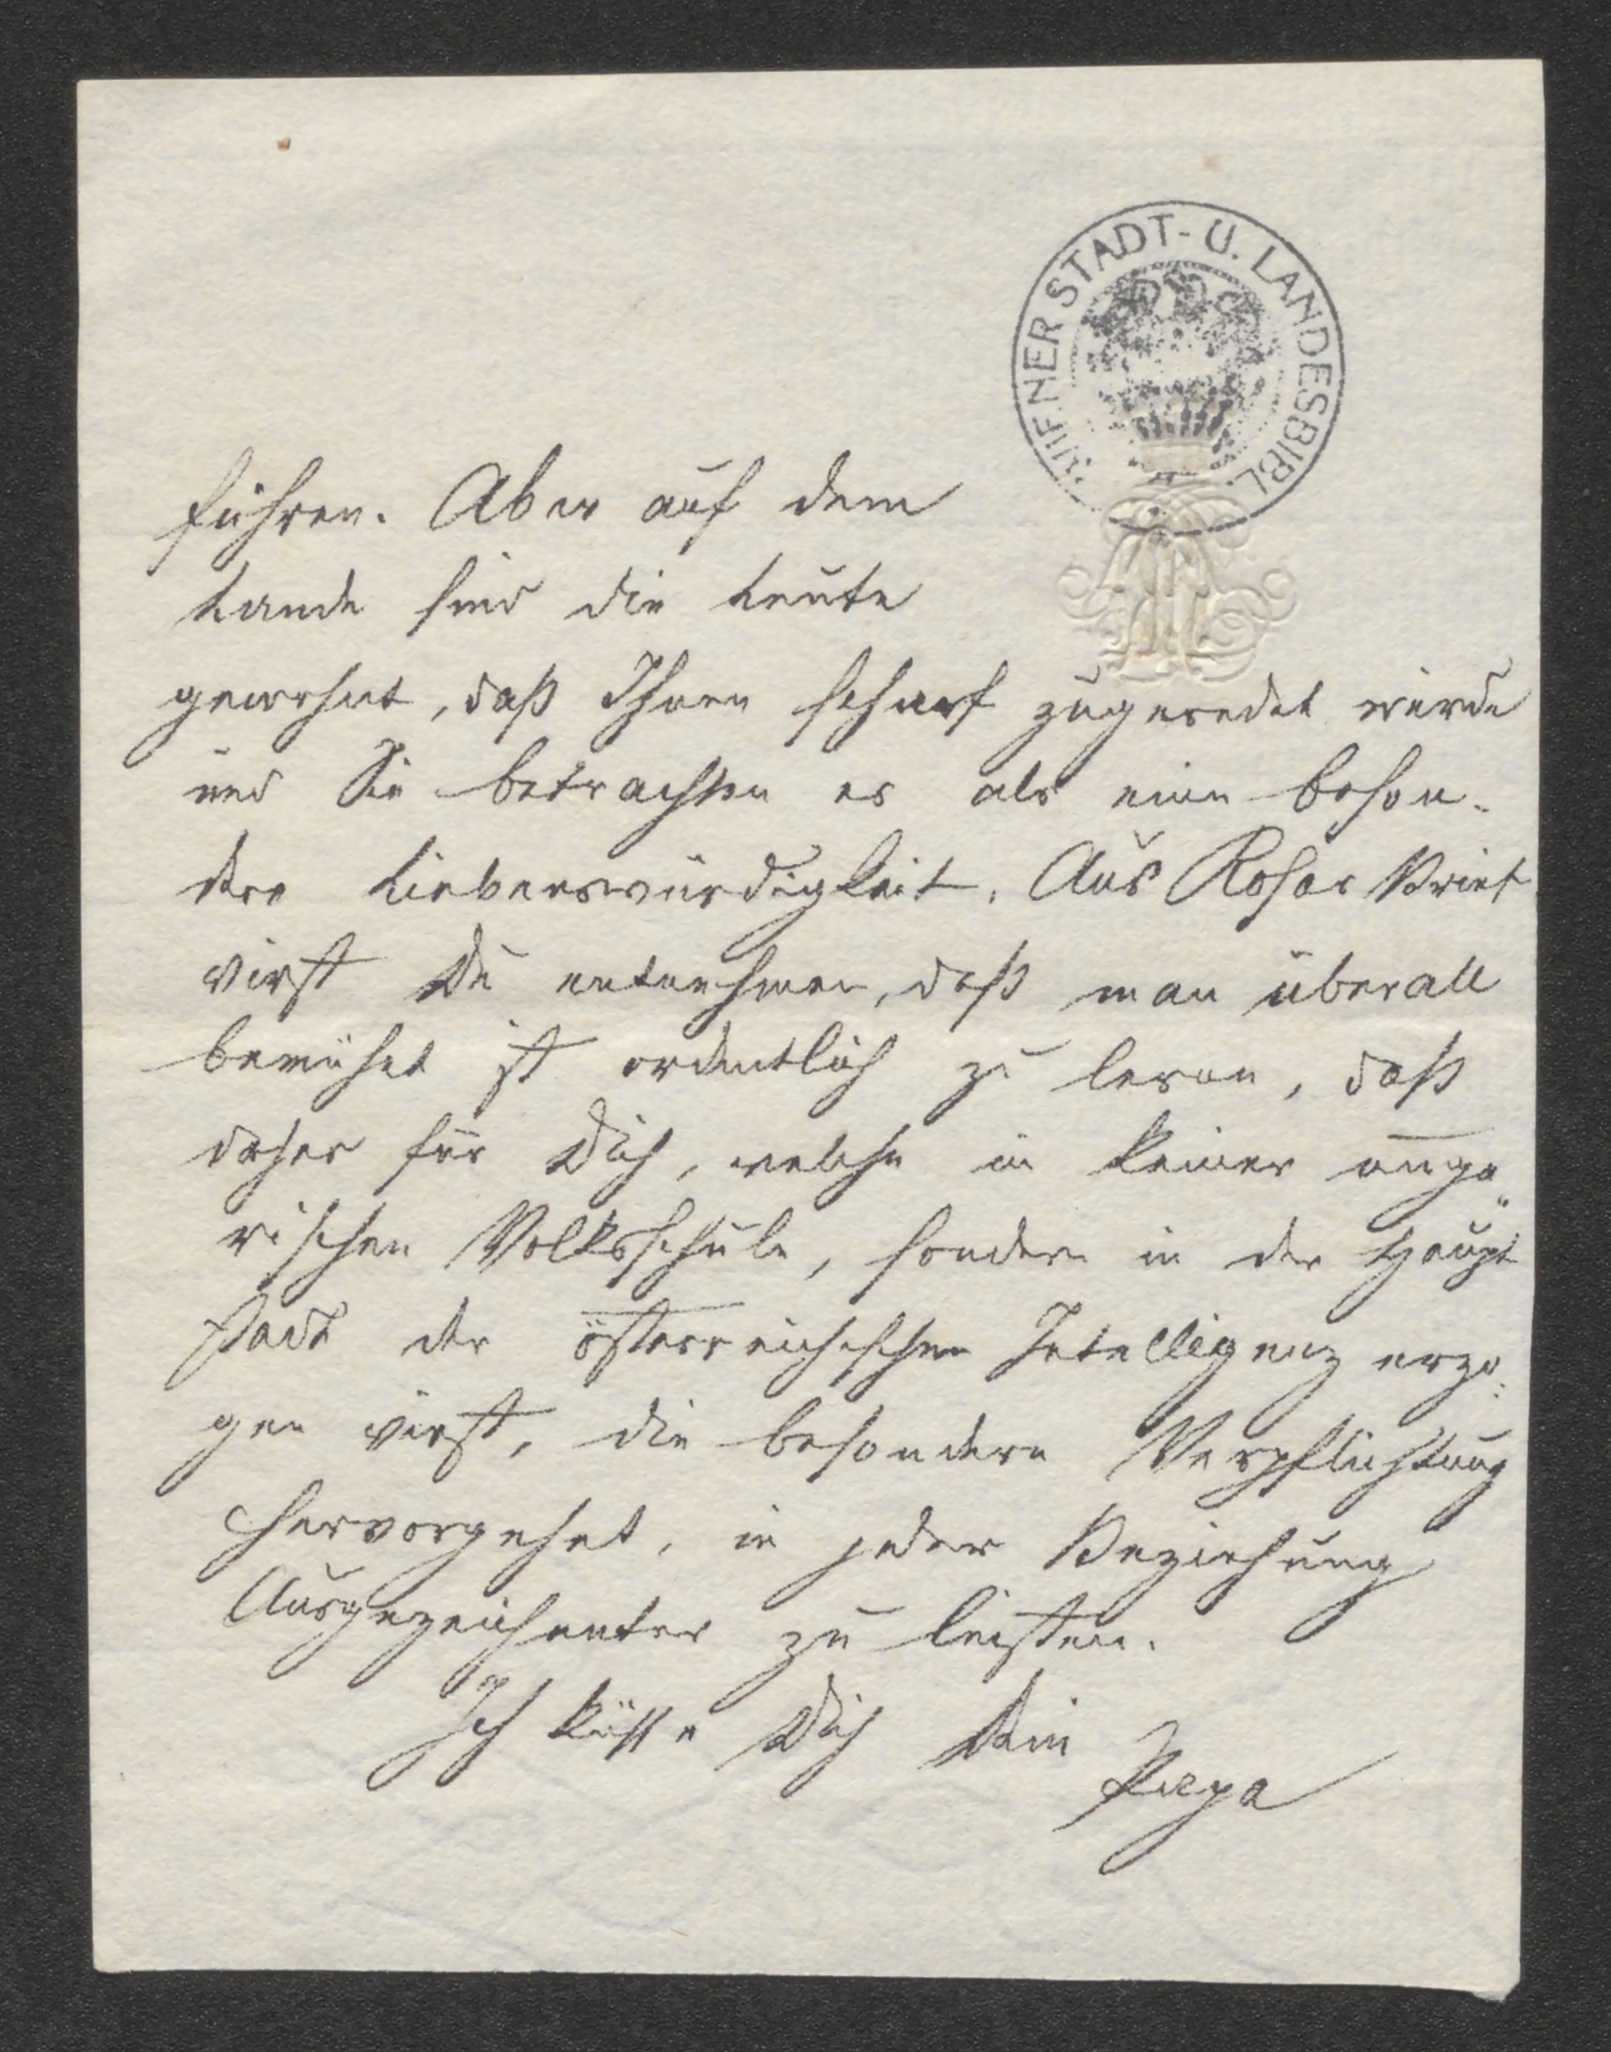 WIENER STADT- U. LANDESBIBL.
führen. Aber auf dem
Lande sind die Leute
gewohnt, daß Ihnen scharf zugeredet würde
und Sie betrachten es als eine beson-
dere Liebenswürdigkeit. Aus Rosas Brief
wirst Du entnehmen, daß man überall
bemühet ist ordentlich zu lernen, daß
daher für Dich, welche in keiner unga-
rischen Volksschule, sondern in der Haupt
stadt der österreichischen Intelligenz erzo-
gen wirst, die besondere Verpflichtung
hervorgehet, in jeder Beziehung
Ausgezeichnetes zu leisten.
Ich küsse Dich Dein
Papa